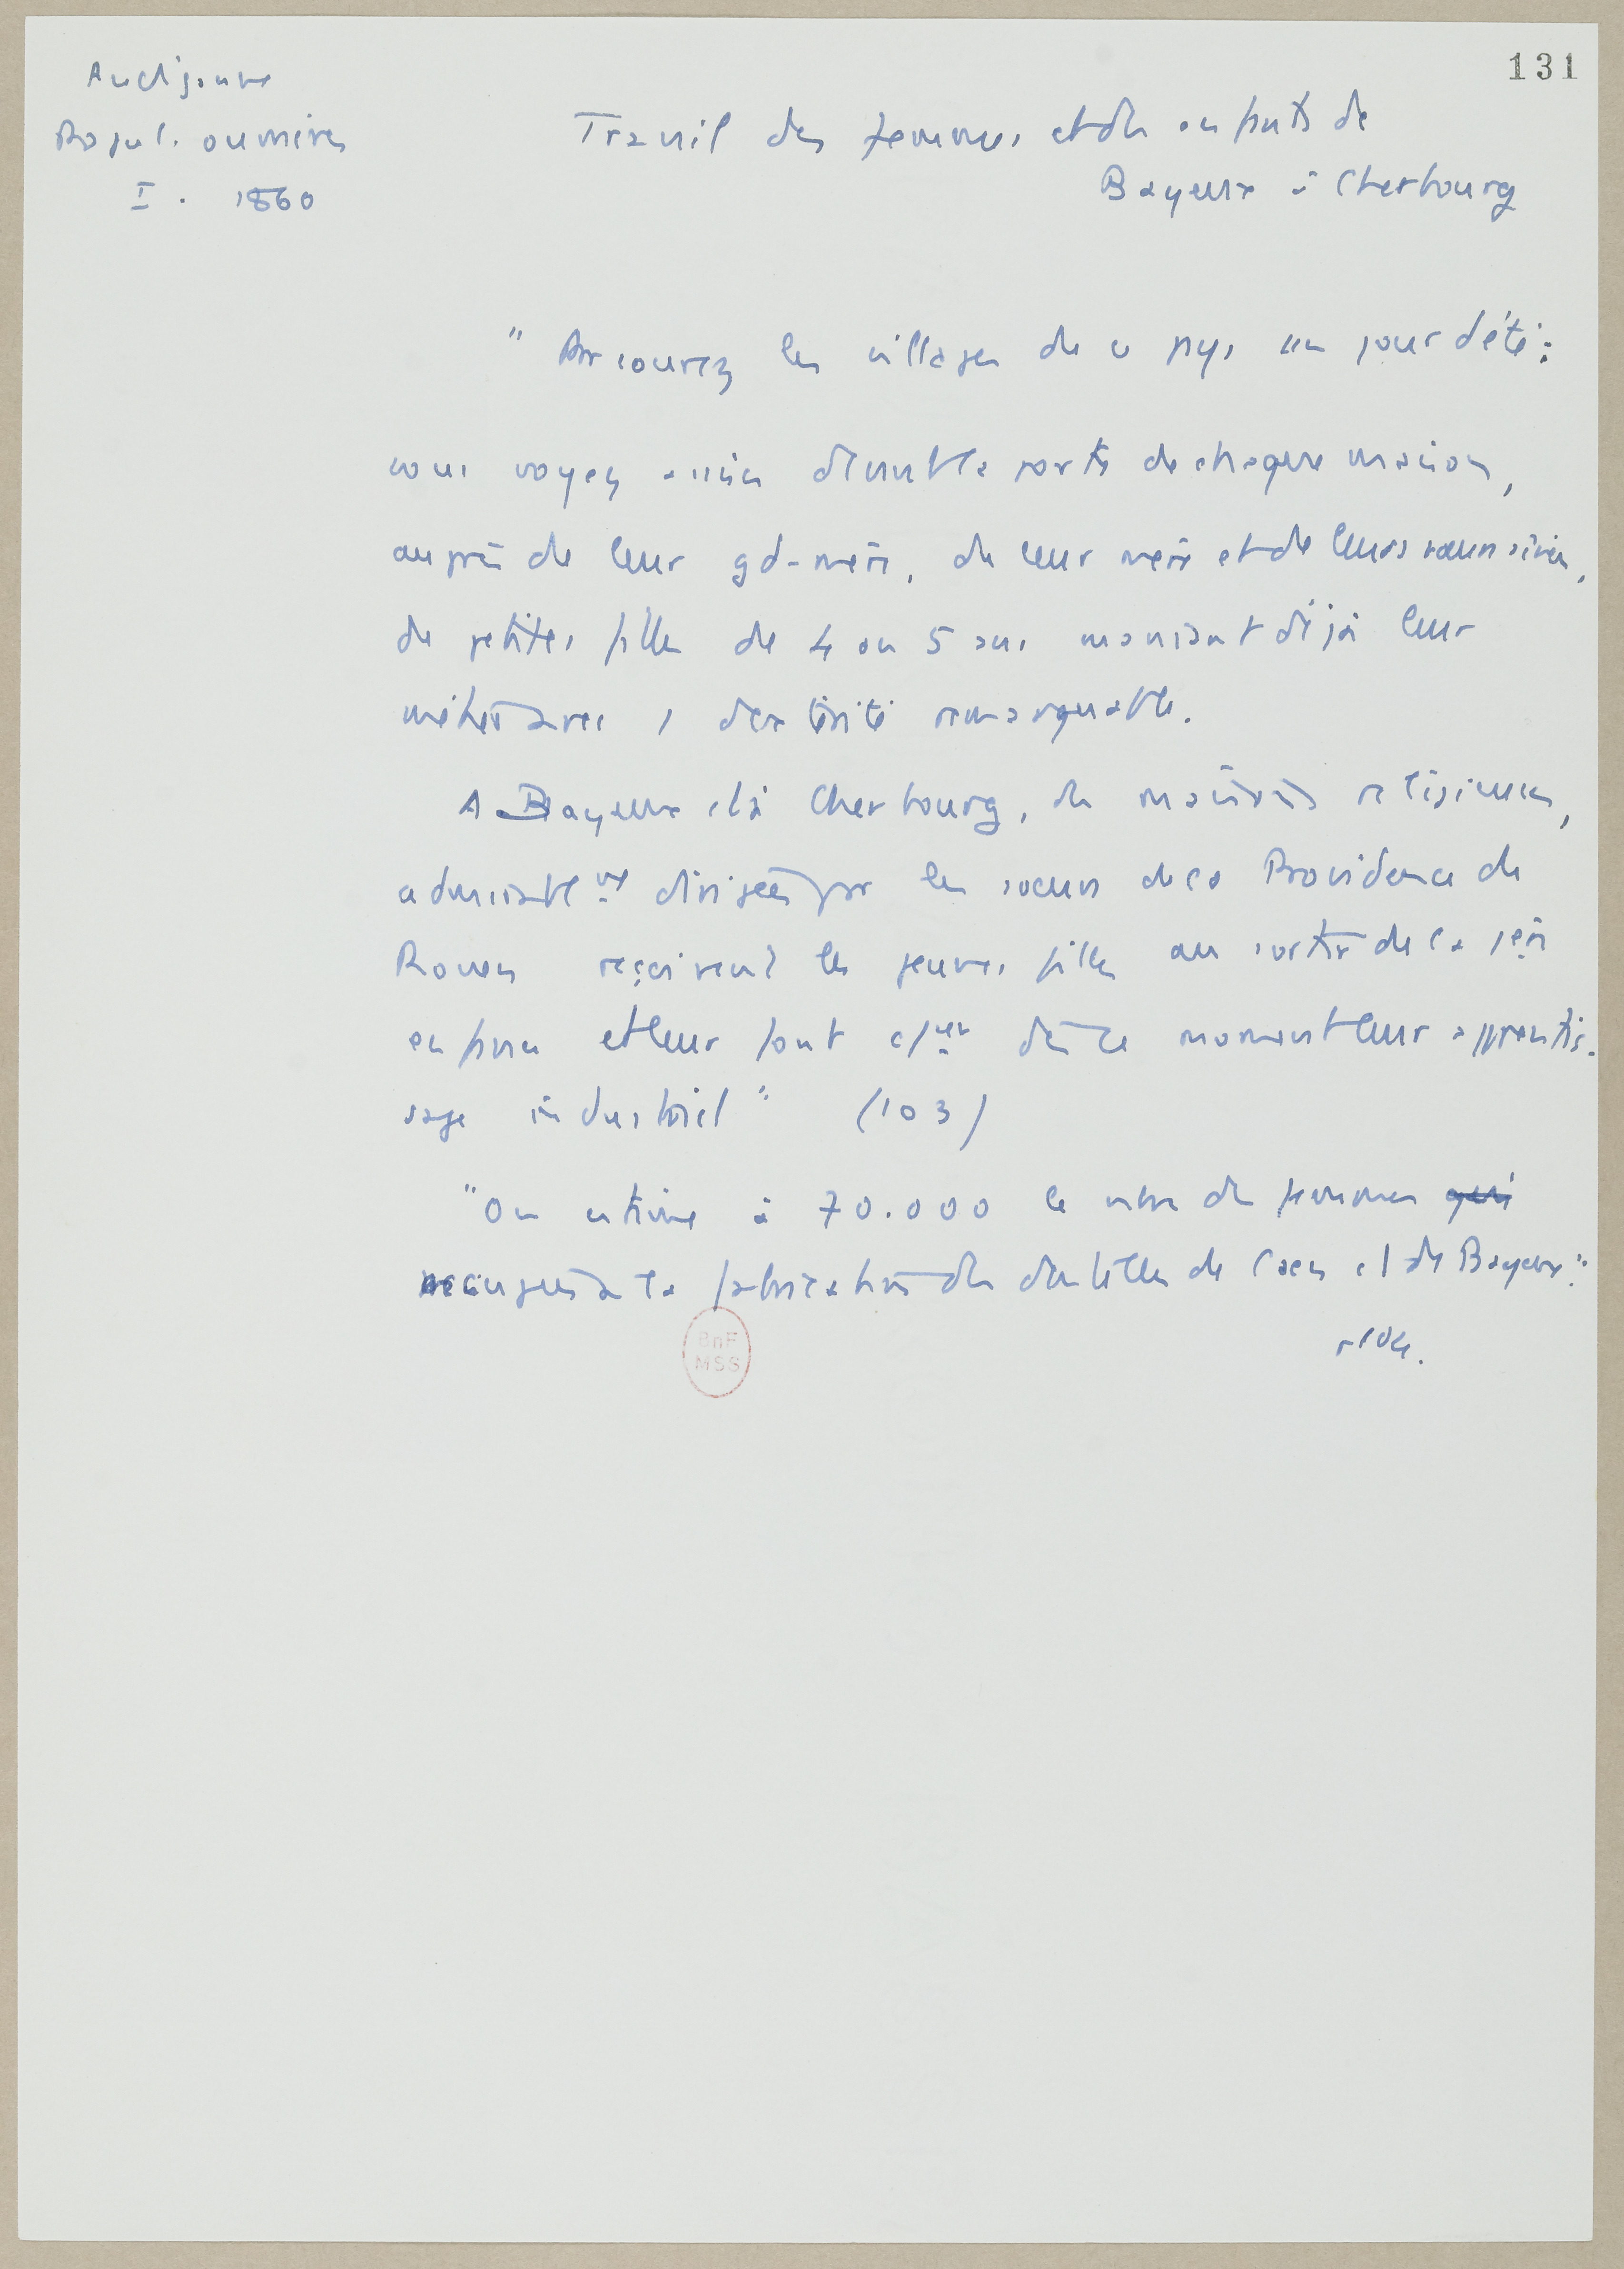 131
Audiganne
Popul. ouvrières
I. 1860
Travail des femmes et des enfants de
Bayeux à Cherbourg
" Parcourez les villages de ce pays un jour d'été :
vous voyez assises devant la porte de chaque maison,
auprès de leur gd-mère, de leur mère et de leurs sœurs aînées,
de petites filles de 4 ou 5 ans maniant déjà leur
métier avec 1 dextérité remarquable.
A Bayeux et à Cherbourg, des maisons religieuses,
admirablemt dirigées par les sœurs de la Providence de
Rouen reçoivent les jeunes filles au sortir de la 1ère
enfance et leur font dès ce moment leur apprentis-
sage industriel" (103)
"On estime à 70.000 le nbre des femmes qui
occupées à la fabrication des dentelles de Caen et de Bayeux."
p 104.
BnF
MSS